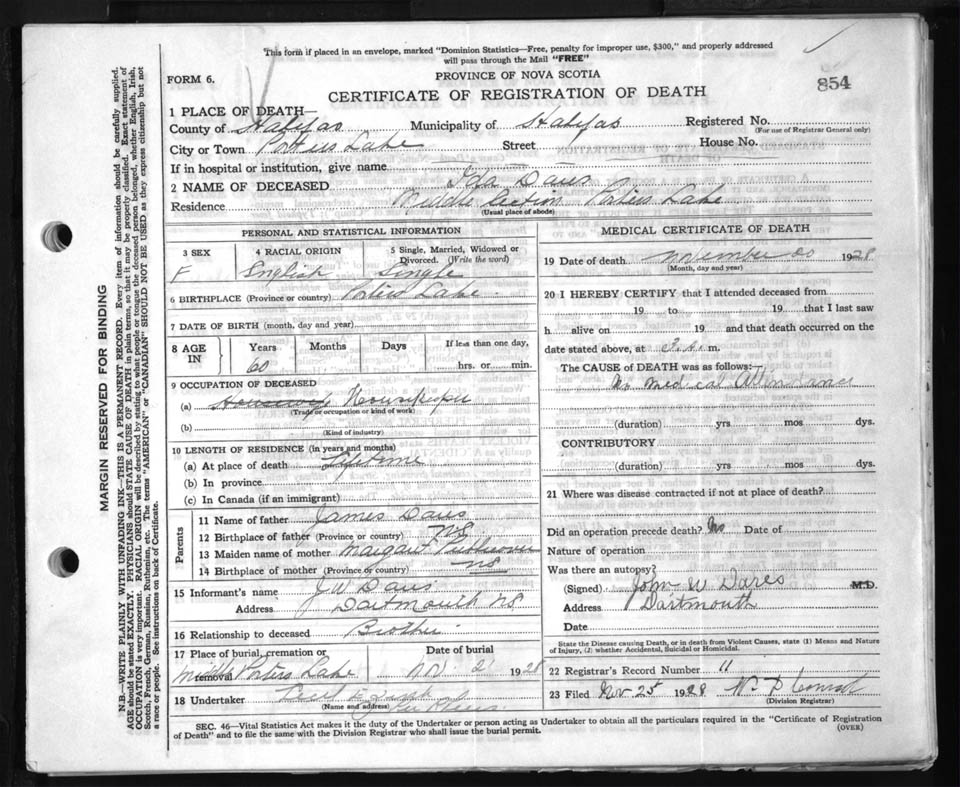 This form if placed in an envelope, marked "Dominion Statistics—Free, penalty for improper use, $300," and properly addressed
will pass through the Mail "FREE"
FORM 6.
PROVINCE OF NOVA SCOTIA
854
CERTIFICATE OF REGISTRATION OF DEATH
1 PLACE OF DEATH—
County of Halifax Municipality of Halifax Registered No.
(For use of Registrar General only)
City or Town Porters Lake Street House No.
If in hospital or institution, give name
2 NAME OF DECEASED Ida Davis
Residence Middle Section Porters Lake
(Usual place of abode)
PERSONAL AND STATISTICAL INFORMATION
3 SEX 4 RACIAL ORIGIN 5 Single, Married, Widowed or
Divorced. (Write the word)
F English Single
6 BIRTHPLACE (Province or country) Porters Lake
7 DATE OF BIRTH (month, day and year)
8 AGE IN Years Months Days If less than one day,
60 hrs. or min.
9 OCCUPATION OF DECEASED
(a) Housekeeper
(Trade or occupation or kind of work)
(b)
(Kind of industry)
10 LENGTH OF RESIDENCE (in years and months)
(a) At place of death Lifetime
(b) In province
(c) In Canada (if an immigrant)
Parents
11 Name of father James Davis
12 Birthplace of father (Province or country) NS
13 Maiden name of mother Margaret
14 Birthplace of mother (Province or country) NS
15 Informant's name J W Davis
Address Dartmouth NS
16 Relationship to deceased Brother
17 Place of burial, cremation or Date of burial
removal Middle Porters Lake Nov 2 1928
18 Undertaker
(Name and address)
MEDICAL CERTIFICATE OF DEATH
19 Date of death November 20 1928
(Month, day and year)
20 I HEREBY CERTIFY that I attended deceased from
19 to 19 that I last saw
h alive on 19 and that death occurred on the
date stated above, at m.
The CAUSE OF DEATH was as follows:
No medical Attendance
(duration) yrs mos dys.
CONTRIBUTORY
(duration) yrs mos dys.
21 Where was disease contracted if not at place of death?
Did an operation precede death? No Date of
Nature of operation
Was there an autopsy?
(Signed) John W Dares M.D.
Address Dartmouth
Date
State the Disease causing Death, or in death from Violent Causes, state (1) Means and Nature
of Injury, (2) whether Accidental, Suicidal or Homicidal.
22 Registrar's Record Number 11
23 Filed Nov 25 1928
(Division Registrar)
SEC. 46—Vital Statistics Act makes it the duty of the Undertaker or person acting as Undertaker to obtain all the particulars required in the "Certificate of Registration
of Death" and to file the same with the Division Registrar who shall issue the burial permit. (OVER)
MARGIN RESERVED FOR BINDING
N.B.—WRITE PLAINLY WITH UNFADING INK—THIS IS A PERMANENT RECORD. Every item of information should be carefully supplied.
AGE should be stated EXACTLY. PHYSICIANS should STATE CAUSE OF DEATH in plain terms, so that it may be properly classified. Exact statement of
OCCUPATION is very important. RACIAL ORIGIN will be described by stating to what people or tongue the deceased person belonged, whether English, Irish,
Scotch, French, German, Russian, Ruthenian, etc. The terms "AMERICAN" or "CANADIAN" SHOULD NOT BE USED as they express citizenship but not
a race or people. See instructions on back of Certificate.